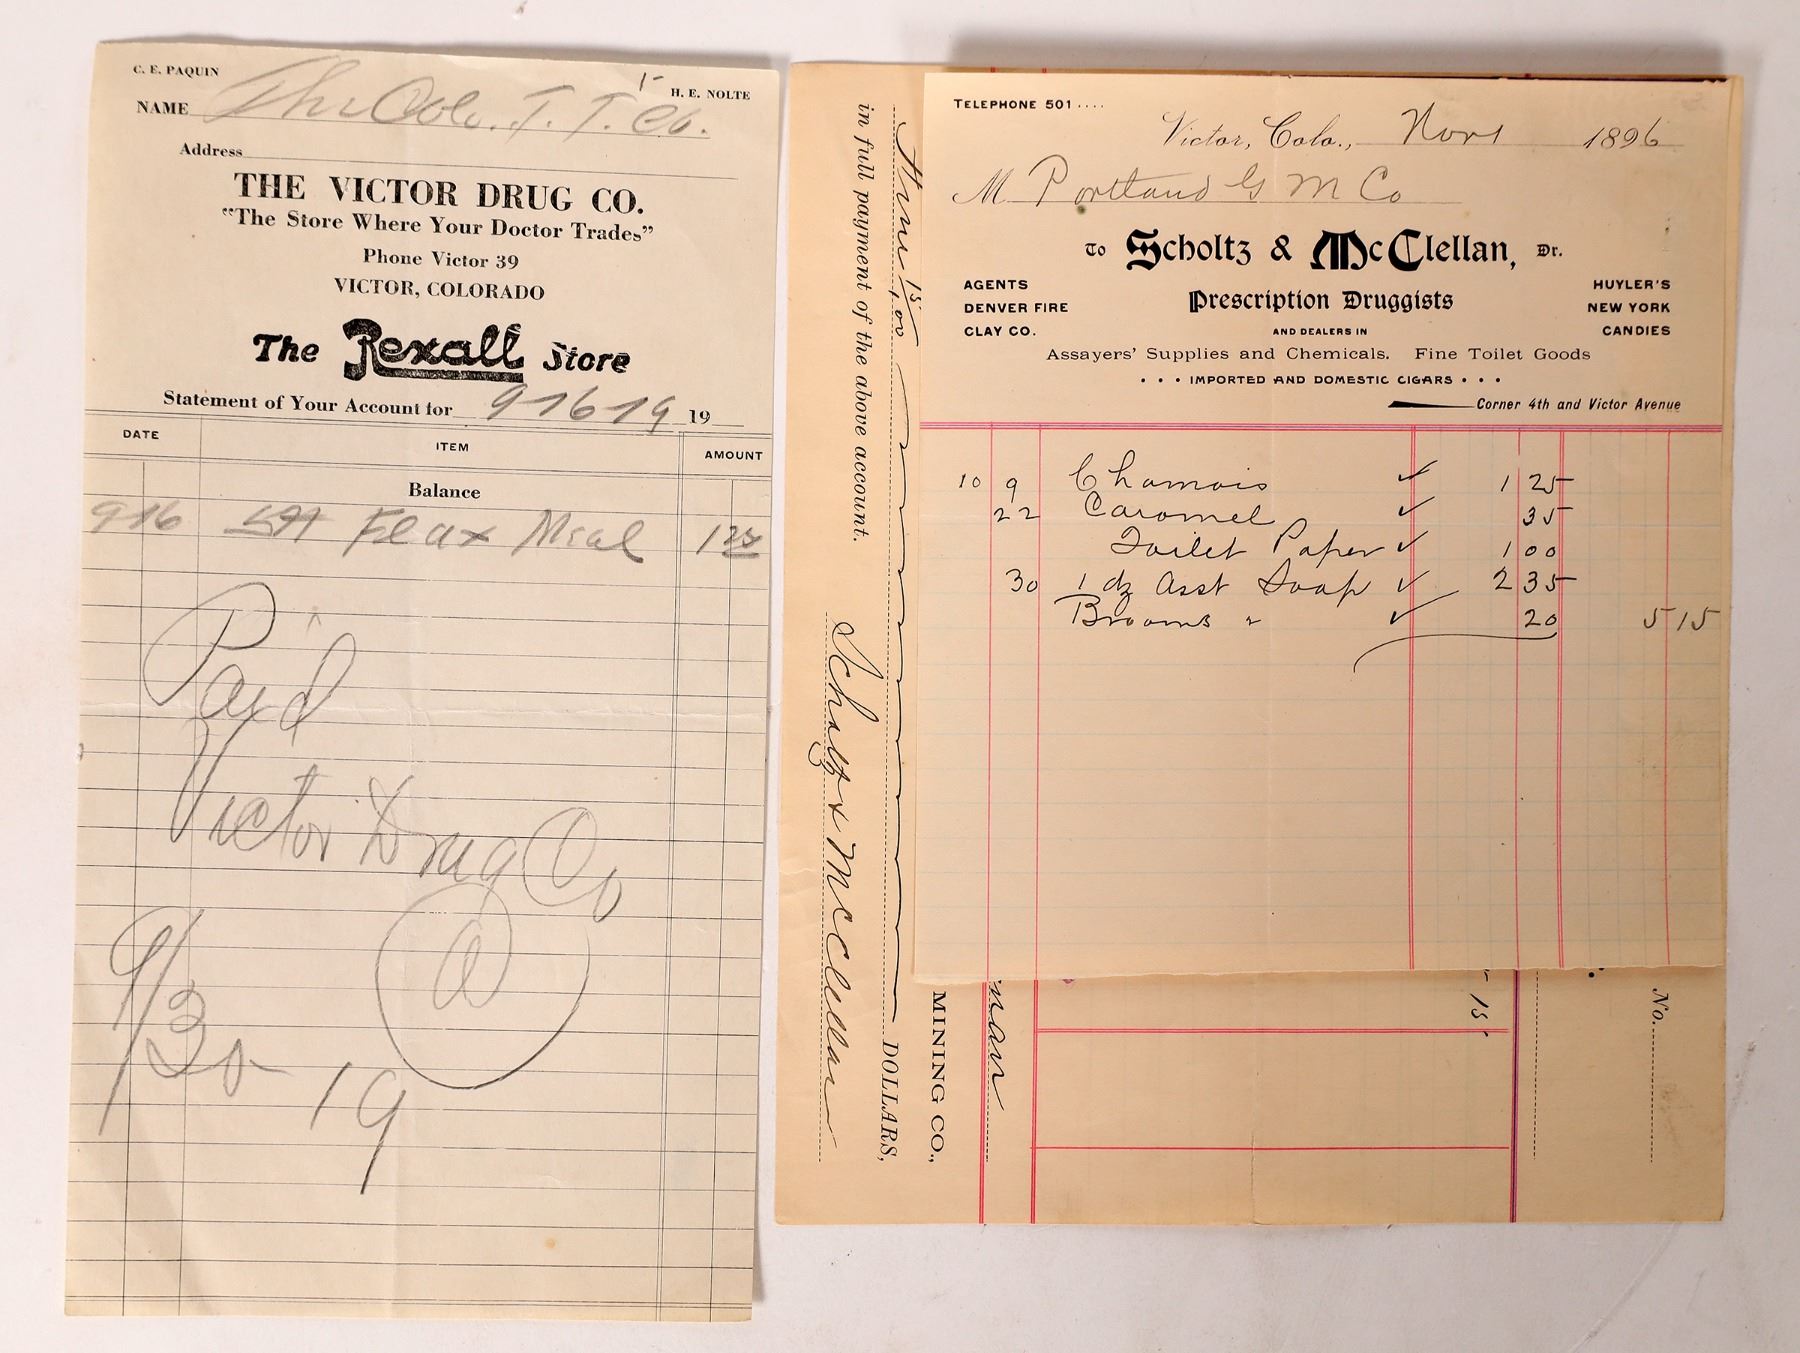 C. E. PAQUIN
H. E. NOLTE
NAME The Colo. T. T. Co.
Address
THE VICTOR DRUG CO.
"The Store Where Your Doctor Trades"
Phone Victor 39
VICTOR, COLORADO
The Rexall Store
Statement of Your Account for 9-16-19 19
DATE ITEM AMOUNT
Balance
9-16 5# Flax Meal 1 25
Paid
Victor Drug Co
9/30 19
TELEPHONE 501 ....
Victor, Colo., Nov 1 1896
M Portland G M Co
TO Scholtz & McClellan, Dr.
AGENTS
DENVER FIRE
CLAY CO.
Prescription Druggists
AND DEALERS IN
HUYLER'S
NEW YORK
CANDIES
Assayers' Supplies and Chemicals. Fine Toilet Goods
• • • IMPORTED AND DOMESTIC CIGARS • • •
Corner 4th and Victor Avenue
10 9 Chamois ✓ 1 25
22 Caramel ✓ 35
Toilet Paper ✓ 1 00
30 1 dz Asst Soap ✓ 2 35
Brooms " ✓ 20 5 15
No.
15
man
MINING CO.,
15/100 DOLLARS,
in full payment of the above account.
Scholtz & McClellan